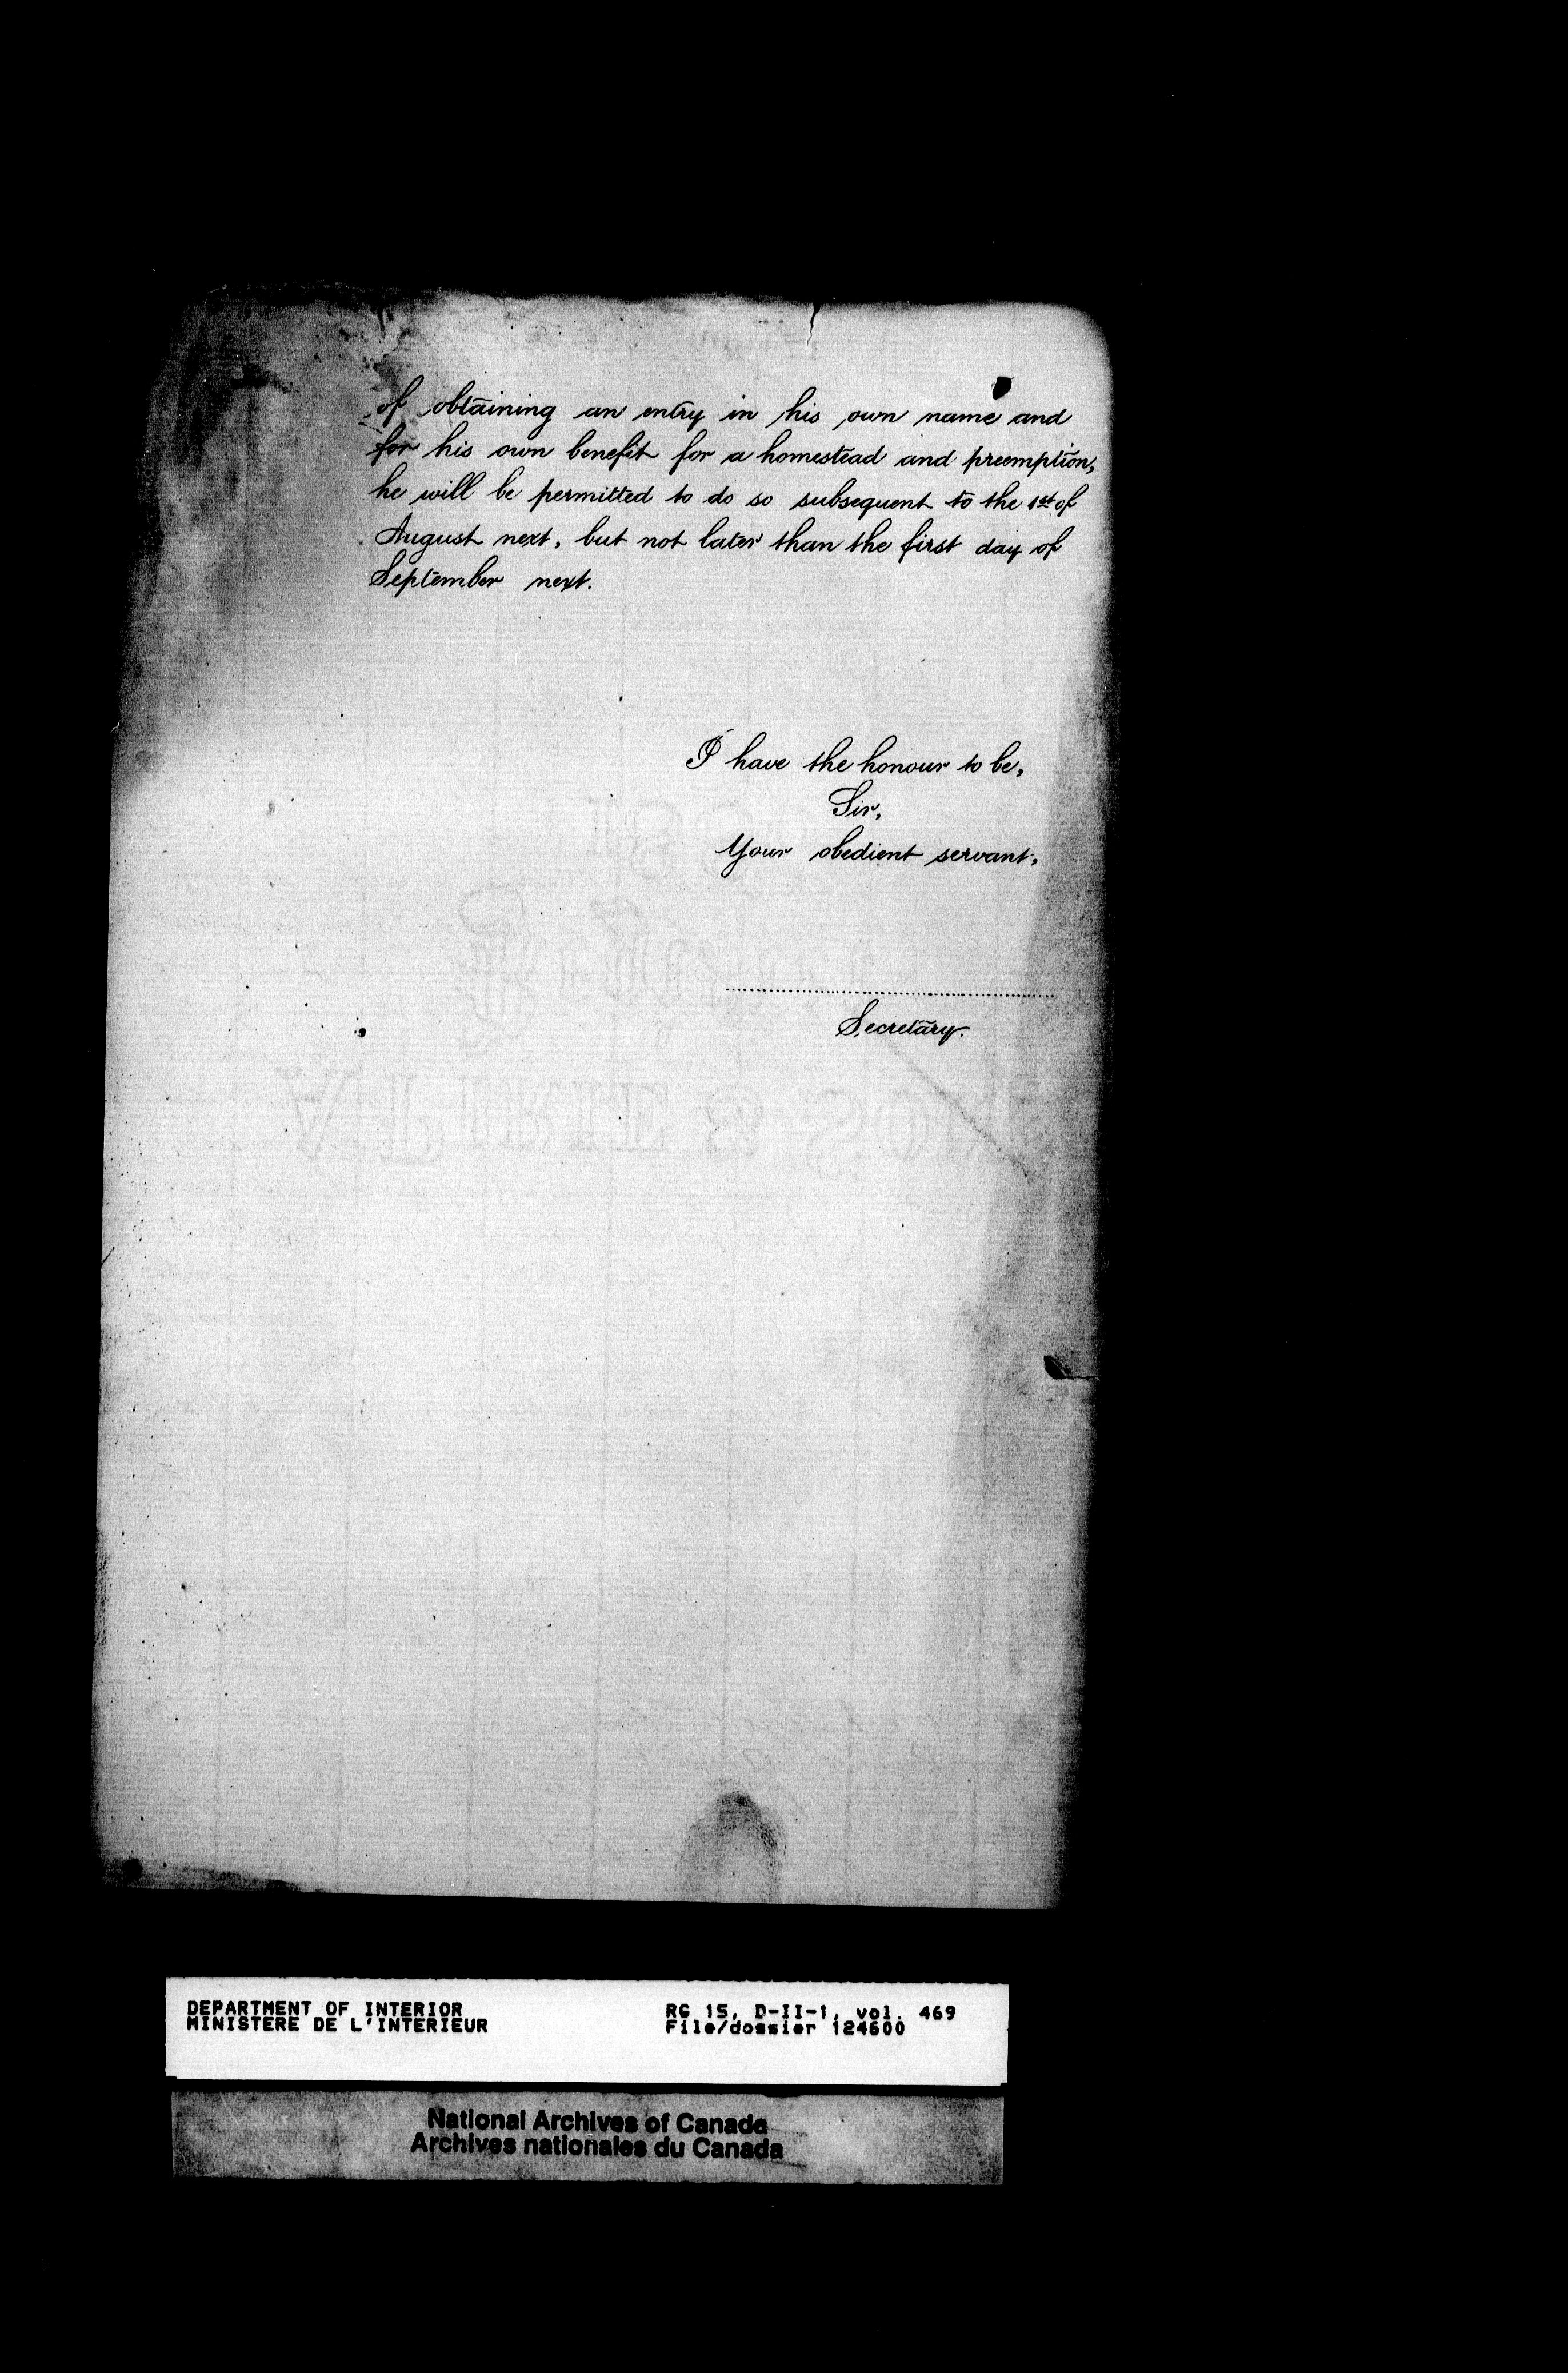 of obtaining an entry in his own name and
for his own benefit for a homestead and preemption,
he will be permitted to do so subsequent to the 1st of
August next, but not later than the first day of
September next.
I have the honour to be,
Sir,
Your obedient servant,
Secretary.
DEPARTMENT OF INTERIOR
MINISTERE DE L'INTERIEUR
RG 15, D-II-1, vol. 469
File/dossier 124600
National Archives of Canada
Archives nationales du Canada